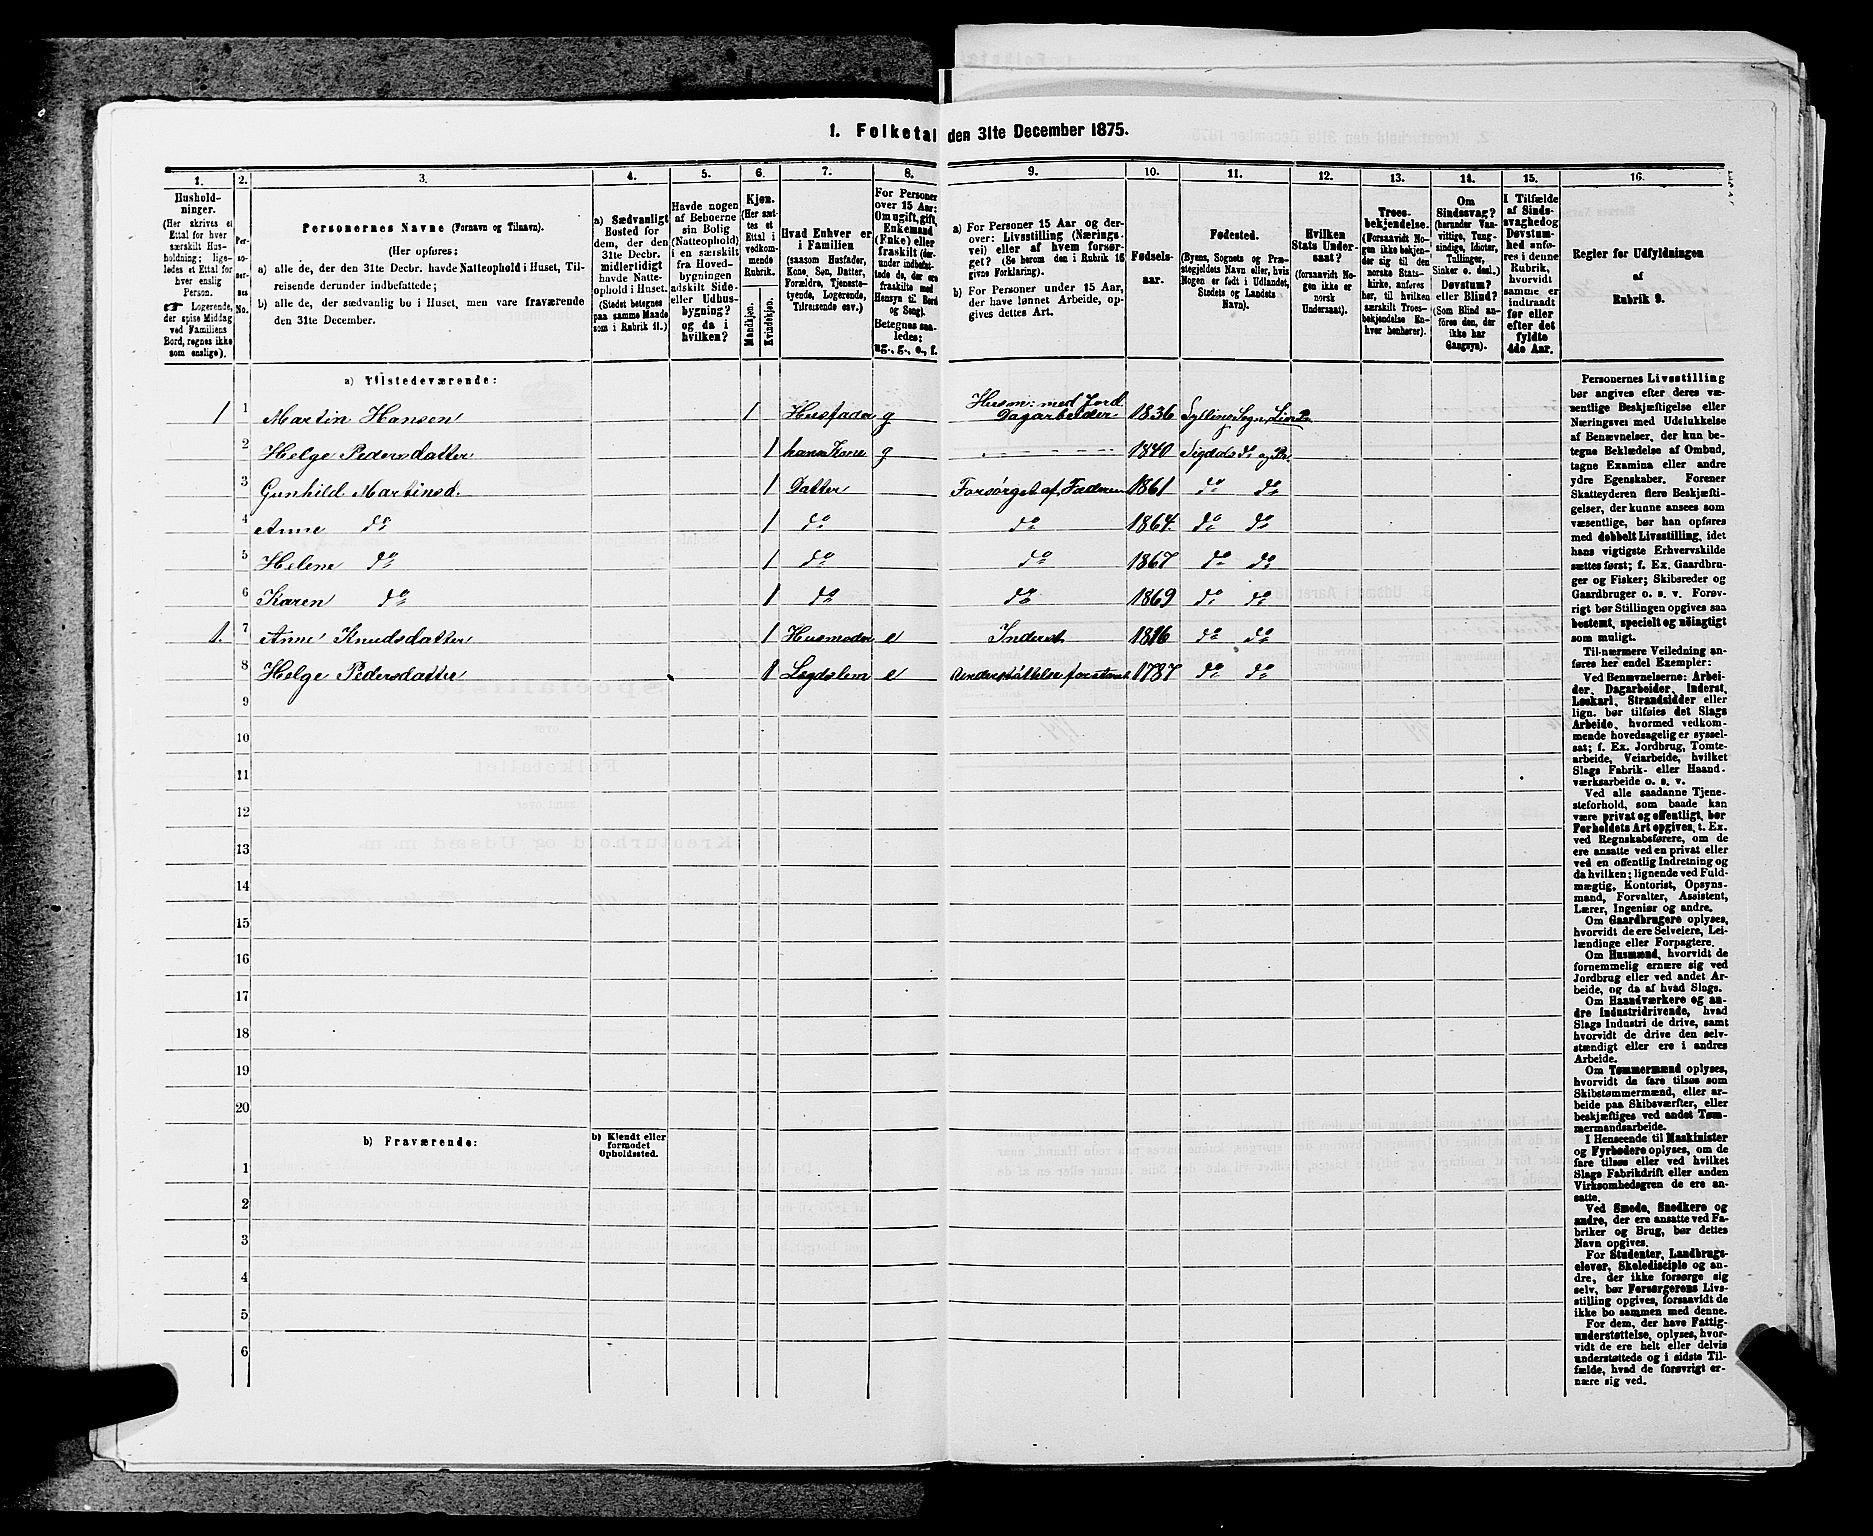 1. Folketal den 31te December 1875.
1.
2.
3.
4.
5.
6.
7.
8.
9.
10.
11.
12.
13.
14.
15.
16.
Husholdninger.
(Her skrives et Ettal for hver særskilt Husholdning; ligeledes et Ettal for hver enslig Person.
☞ Logerende, der spise Middag ved Familiens Bord, regnes ikke som enslige).
Personernes No.
Personernes Navne (Fornavn og Tilnavn).
(Her opføres:
a) alle de, der den 31te Decbr. havde Natteophold i Huset, Tilreisende derunder indbefattede;
b) alle de, der sædvanlig bo i Huset, men vare fraværende den 31te December.
a) Sædvanligt Bosted for dem, der den 31te Decbr. midlertidigt havde Natteophold i Huset. (Stedet betegnes paa samme Maade som i Rubrik 11.)
Havde nogen af Beboerne sin Bolig (Natteophold) i en særskilt fra Hovedbygningen adskilt Side- eller Udhusbygning? og da i hvilken?
Kjøn.
(Her sættes et Ettal i vedkommende Rubrik.
Mandkjøn.
Kvindekjøn.
Hvad Enhver er i Familien
(saasom Husfader, Kone, Søn, Datter, Forældre, Tjenestetyende, Logerende, Tilreisende osv.)
For Personer over 15 Aar: Om ugift, gift, Enkemand (Enke) eller fraskilt (derunder indbefattede de, der ere fraskilte med Hensyn til Bord og Seng).
Betegnes saaledes: ug., g., e., f.
a) For Personer 15 Aar og derover: Livsstilling (Næringsvei) eller af hvem forsørget? (Se herom den i Rubrik 16 givne Forklaring).
b) For Personer under 15 Aar, der have lønnet Arbeide, opgives dettes Art.
Fødselsaar.
Fødested.
(Byens, Sognets og Præstegjeldets Navn eller, hvis Nogen er født i Udlandet, Stedets og Landets Navn).
Hvilken Stats Undersaat?
(forsaavidt Nogen ikke er norsk Undersaat).
Troesbekjendelse.
(Forsaavidt Nogen ikke bekjender sig til den norske Statskirke, anføres her, til hvilken særskilt Troesbekjendelse Enhver henhører).
Om Sindssvag? (herunder Vanvittige, Tungsindige, Idioter, Tullinger, Sinker o. desl.) Døvstum? eller Blind? (Som Blind anføres den, der ikke har Gangsyn).
I Tilfælde af Sindssvaghed og Døvstumhed anføres i denne Rubrik, hvorvidt samme er indtraadt før eller efter det fyldte 4de Aar.
Regler for Udfyldningen af Rubrik 9.
a) Tilstedeværende:
1 1 Martin Hansen 1 Husfader g Husm: med Jord Dagarbeider 1836 Syllings Sogn, Lier Pr.
2 Helge Pedersdatter 1 hans Kone g 1840 Sigdals do og Pr.
3 Gunhild Martinsd. 1 Datter Forsørget af Faderen 1861 do do
4 Anne do 1 do do 1864. do do
5 Helene do 1 do do 1867 do do
6 Karen do 1 do do 1869 do do
1. 7 Anne Knudsdatter 1 Husmoder e Inderst 1816 do do
8 Helge Pedersdatter 1 Lægdslem e 1787 do do
9
10
11
12
13
14
15
16
17
18
19
20
b) Fraværende:
b) Kjendt eller formodet Opholdssted.
1
2
3
4
5
6
Personernes Livsstilling
bør angives efter deres væsentlige Beskjæftigelse eller
Næringsvei med Udelukkelse
af Benævnelser, der kun betegne Beklædelse af Ombud,
tagne Examina eller andre
ydre Egenskaber. Forener
Skatteyderen flere Beskjæftigelser, der kunne ansees som
væsentlige, bør han opføres
med dobbelt Livsstilling, idet
hans vigtigste Erhvervskilde
sættes først; f. Ex. Gaardbruger og Fisker; Skibsreder og
Gaardbruger o. s. v. Forøvrigt bør Stillingen opgives saa
bestemt, specielt og nøiagtigt
som muligt.
Til nærmere Veiledning anføres her endel Exempler:
Ved Benævnelserne: Arbeider, Dagarbeider, Inderst,
Løskarl, Strandsidder eller
lign. bør tilføies det Slags
Arbeide, hvormed vedkommende hovedsagelig er sysselsat; f. Ex. Jordbrug, Tomtearbeide, Veiarbeide, hvilket
Slags Fabrik- eller Haandværksarbeide o. s. v.
Ved alle saadanne Tjenesteforhold, som baade kan
være privat og offentligt, bør
Forholdets Art opgives, t. Ex.
ved Regnskabsførere, om de
ere ansatte ved en privat eller
ved en offentlig Indretning og
da hvilken; lignende ved Fuldmægtig, Kontorist, Opsynsmand, Forvalter, Assistent,
Lærer, Ingeniør og andre.
Om Gaardbrugere oplyses,
hvorvidt de ere Selveiere, Leilændinge eller Forpagtere.
Om Husmænd, hvorvidt de
fornemmelig ernære sig ved
Jordbrug eller ved andet Arbeide, og da af hvad Slags.
Om Haandværkere og andre Industridrivende, hvad
Slags Industri de drive, samt
hvorvidt de drive den selvstændigt eller ere i andres
Arbeide.
Om Tømmermænd oplyses,
hvorvidt de fare tilsøs som
Skibstømmermænd, eller arbeide paa Skibsværfter, eller
beskjæftiges ved andet Tømmermandsarbeide.
I Henseende til Maskinister
og Fyrbødere oplyses, om de
fare tilsøs eller ved hvilket
Slags Fabrikdrift eller anden
Virksomhedsgren de ere ansatte.
Ved Smede, Snedkere og
andre, der ere ansatte ved Fabriker og Brug, bør dettes
Navn opgives.
For Studenter, Landbrugselever, Skoledisciple og andre, der ikke forsørge sig
selv, bør Forsørgerens Livsstilling opgives, forsaavidt de
ikke bo sammen med denne.
For dem, der have Fattigunderstøttelse, oplyses, hvorvidt de ere helt eller delvis
understøttede og i sidste Tilfælde, hvad de forøvrigt ernære sig ved.